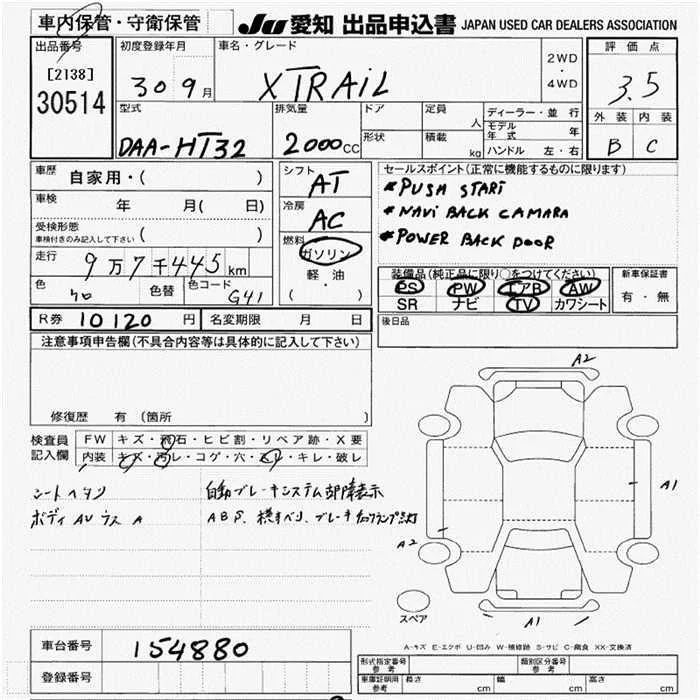 車内保管・守衛保管
JU 愛知 出品申込書 JAPAN USED CAR DEALERS ASSOCIATION
出品番号
[2138]
30514
初度登録年月
30 9月
車名・グレード
XTRAIL
2WD
・
4WD
評価点
3.5
外装 内装
B C
型式
DAA-HT32
排気量
2000CC
ドア
形状
定員 人
積載 kg
ディーラー・並行
モデル年式 年
ハンドル 左・右
車歴 自家用・( )
車検 年 月( 日)
受検形態
車検付きのみ記入して下さい ( )
走行 9万7千445km
色 クロ 色替 色コード G41
シフト AT
冷房 AC
燃料 ガソリン
軽・油
( )
セールスポイント(正常に機能するものに限ります)
*PUSH START
*NAVI BACK CAMARA
*POWER BACK DOOR
装備品(純正品に限り○をつけてください)
PS PW エアB AW
SR ナビ TV カワシート
新車保証書
有・無
後日品
R券 10120円 名変期限 月 日
注意事項申告欄(不具合内容等は具体的に記入して下さい)
修復歴 有 (箇所 )
検査員記入欄
FW キズ・飛石・ヒビ割・リペア跡・X要
内装 キズ・汚レ・コゲ・穴・スレ・キレ・破レ
シートヘタリ
ボディAUウス A
自動ブレーキシステム故障表示
ABS、横すべり、ブレーキ
A2
A1
A2
A1
スペア
A-キズ E-エクボ U-凹み W-補修跡 S-サビ C-腐食 XX-交換済
車台番号 154880
登録番号
形式指定番号 参考
類別区分番号 参考
車庫証明用 参考 長さ cm 幅 cm 高さ cm